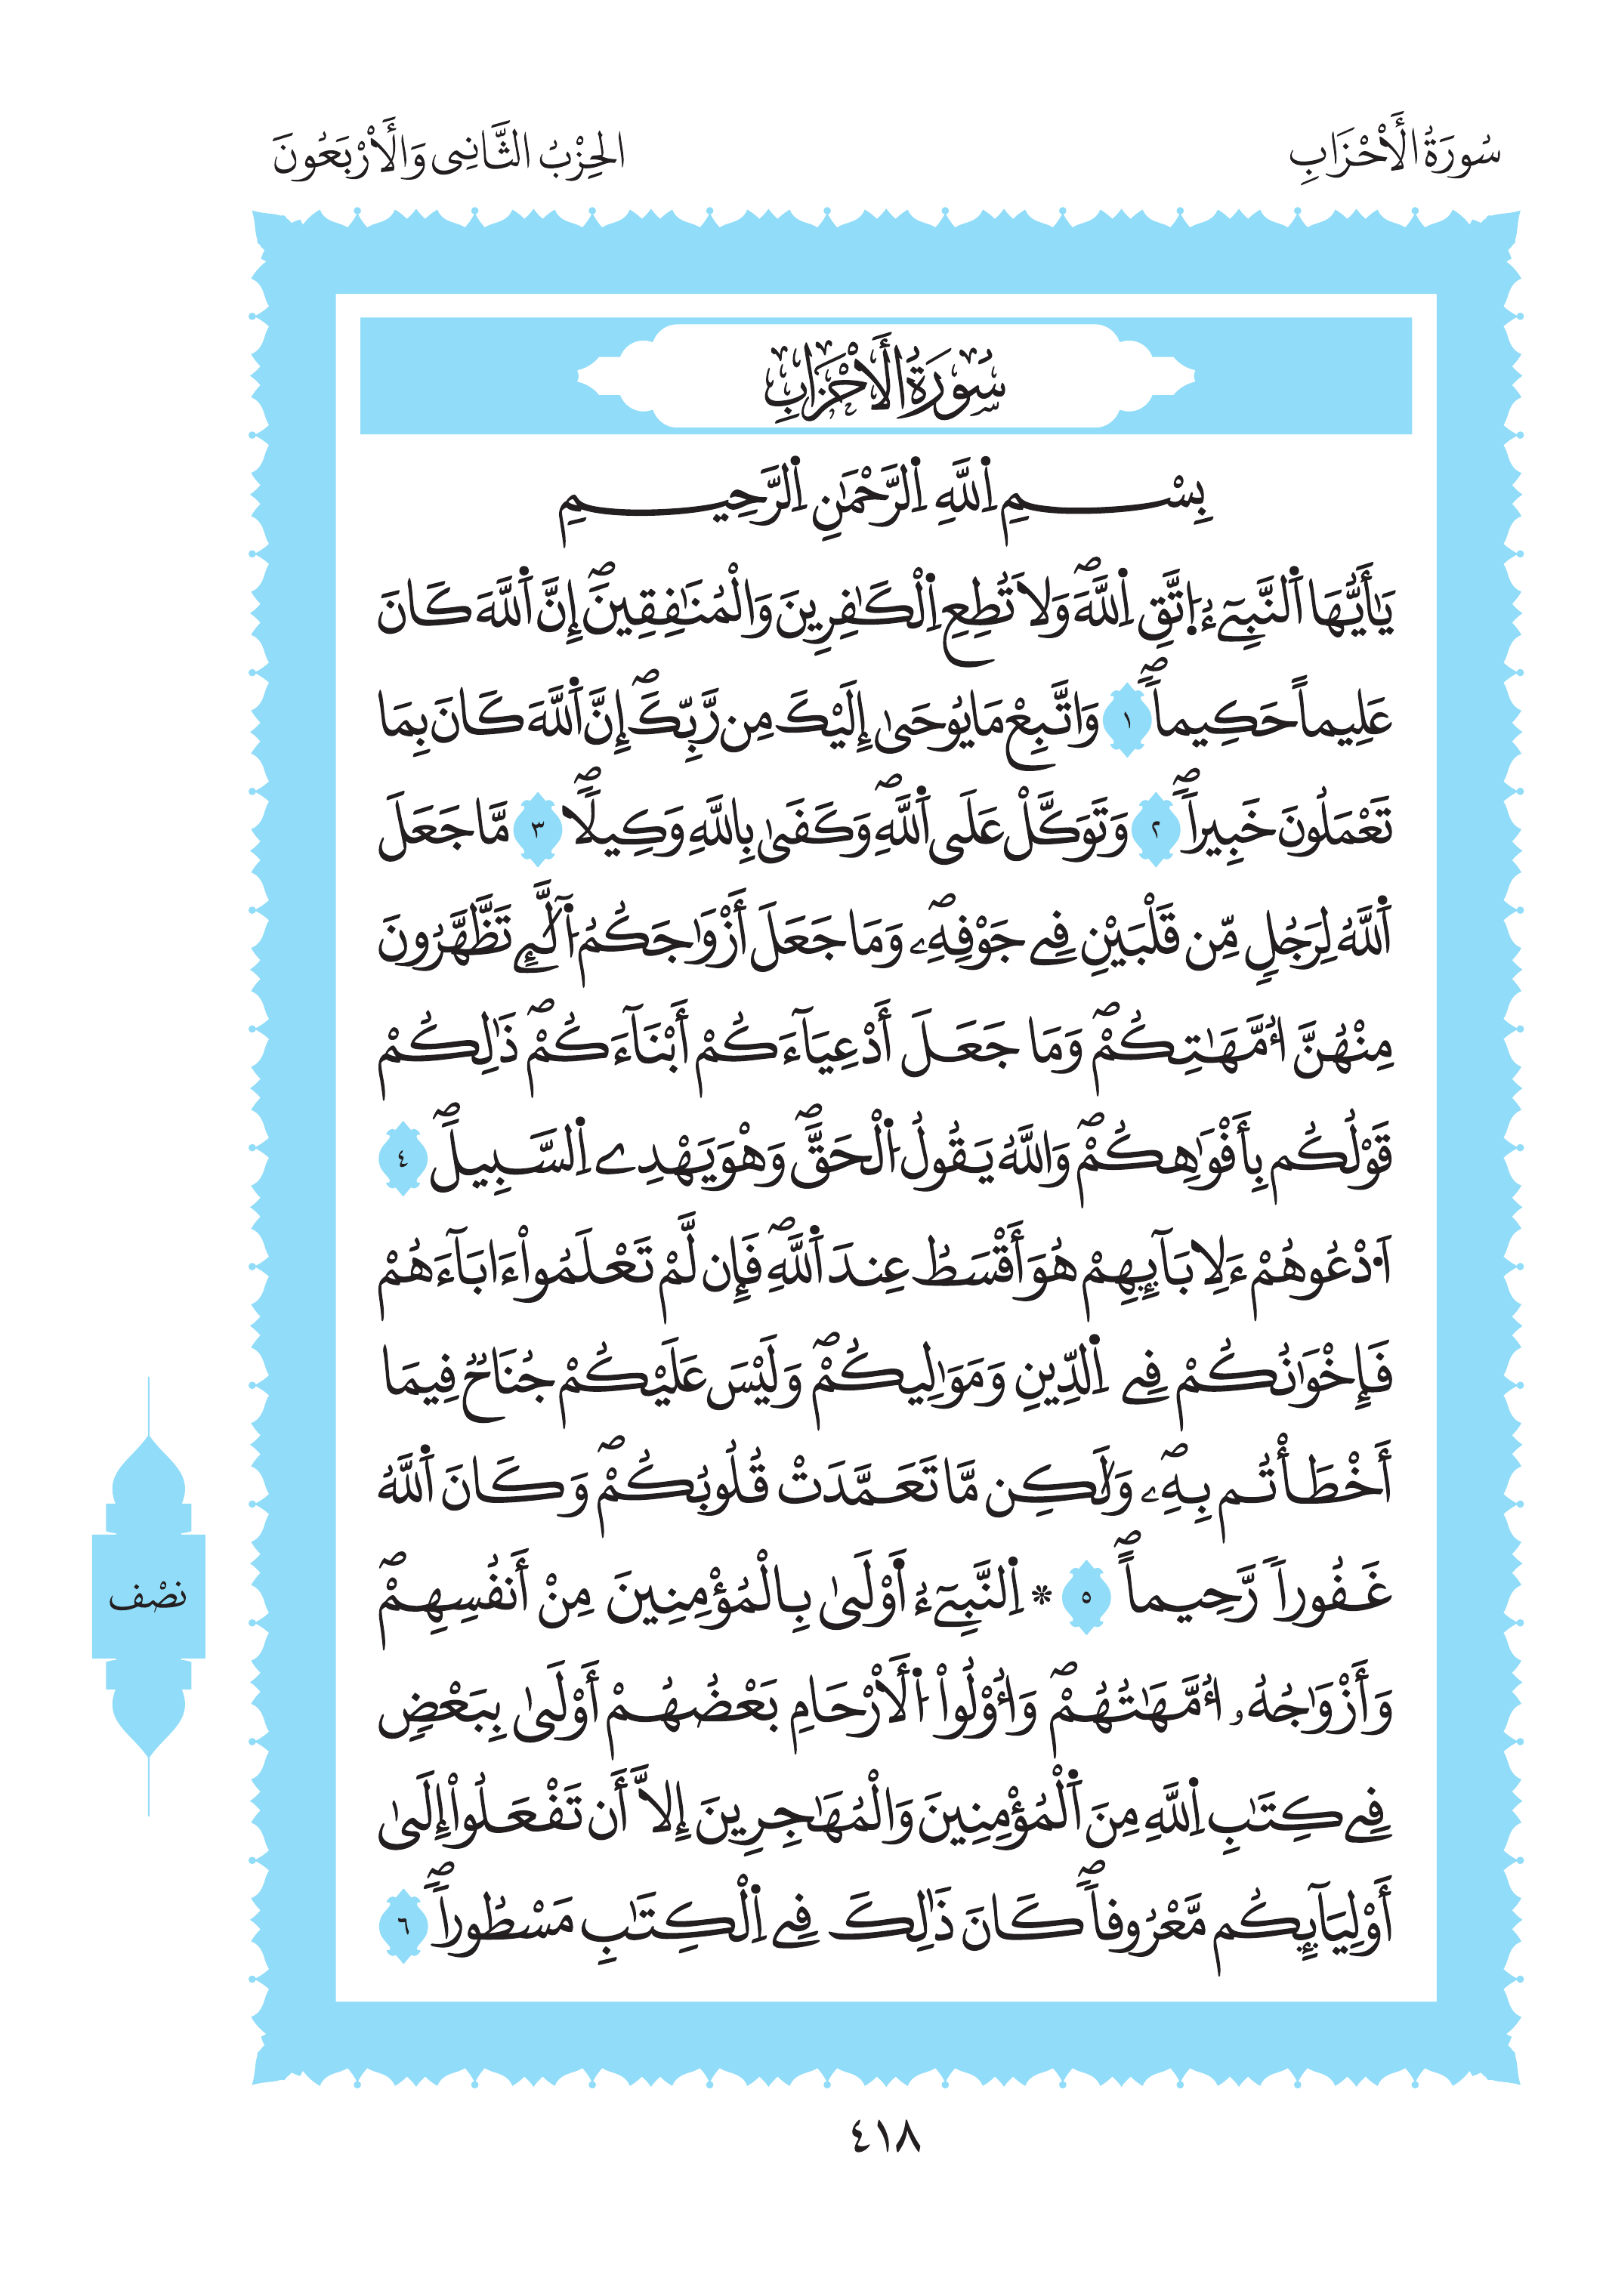 سُورَةُ الْأَحْزَابِ
الحِزْبُ الثَّانِي وَالْأَرْبَعُونَ
سُورَةُ الْأَحْزَابِ
بِسْمِ اِ۬للَّهِ اِ۬لرَّحْمَٰنِ اِ۬لرَّحِيمِ
يَٰأَيُّهَا اَ۬لنَّبِےٓءُ اِ۪تَّقِ اِ۬للَّهَۖ وَلَا تُطِعِ اِ۬لْكَٰفِرِينَ وَالْمُنَٰفِقِينَۖ إِنَّ اَ۬للَّهَ كَانَ
عَلِيماً حَكِيماٗۖ ١ وَاتَّبِعْ مَا يُوحَىٰ إِلَيْكَ مِن رَّبِّكَۖ إِنَّ اَ۬للَّهَ كَانَ بِمَا
تَعْمَلُونَ خَبِيراٗۖ ٢ وَتَوَكَّلْ عَلَى اَ۬للَّهِۖ وَكَفَىٰ بِاللَّهِ وَكِيلٗاۖ ٣ مَّا جَعَلَ
اَ۬للَّهُ لِرَجُلٖ مِّن قَلْبَيْنِ فِے جَوْفِهِۦۖ وَمَا جَعَلَ أَزْوَٰجَكُمُ اُ۬لَّٰٓـِٕے تَظَّهَّرُونَ
مِنْهُنَّ أُمَّهَٰتِكُمْۖ وَمَا جَعَلَ أَدْعِيَآءَكُمْ أَبْنَآءَكُمْۖ ذَٰلِكُمْ
قَوْلُكُم بِأَفْوَٰهِكُمْۖ وَاللَّهُ يَقُولُ اُ۬لْحَقَّۖ وَهْوَ يَهْدِے اِ۬لسَّبِيلَۖ ٤
اَ۟دْعُوهُمْ ءَلِابَآئِهِمْ هُوَ أَقْسَطُ عِندَ اَ۬للَّهِۖ فَإِن لَّمْ تَعْلَمُواْ ءَابَآءَهُمْ
فَإِخْوَٰنُكُمْ فِے اِ۬لدِّينِ وَمَوَٰلِيكُمْۖ وَلَيْسَ عَلَيْكُمْ جُنَاحٞ فِيمَا
أَخْطَأْتُم بِهِۦۖ وَلَٰكِن مَّا تَعَمَّدَتْ قُلُوبُكُمْۖ وَكَانَ اَ۬للَّهُ
غَفُوراٗ رَّحِيماًۖ ٥ * اِ۬لنَّبِےٓءُ أَوْلَىٰ بِالْمُؤْمِنِينَ مِنْ أَنفُسِهِمْۖ
وَأَزْوَٰجُهُۥ أُمَّهَٰتُهُمْۖ وَأُوْلُواْ اُ۬لْأَرْحَامِ بَعْضُهُمْ أَوْلَىٰ بِبَعْضٖ
فِے كِتَٰبِ اِ۬للَّهِ مِنَ اَ۬لْمُؤْمِنِينَ وَالْمُهَٰجِرِينَ إِلَّا أَن تَفْعَلُواْ إِلَىٰ
أَوْلِيَآئِكُم مَّعْرُوفاٗۖ كَانَ ذَٰلِكَ فِے اِ۬لْكِتَٰبِ مَسْطُوراٗۖ ٦
نصْف
٤١٨